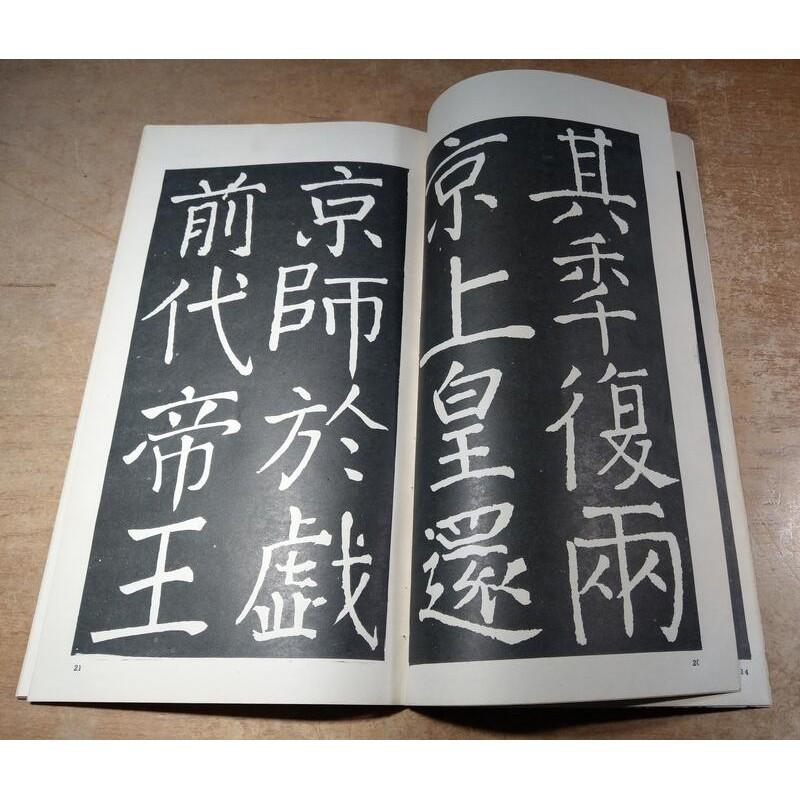 其秊復兩
京上皇還
20
京師於戯
前代帝王
21
14